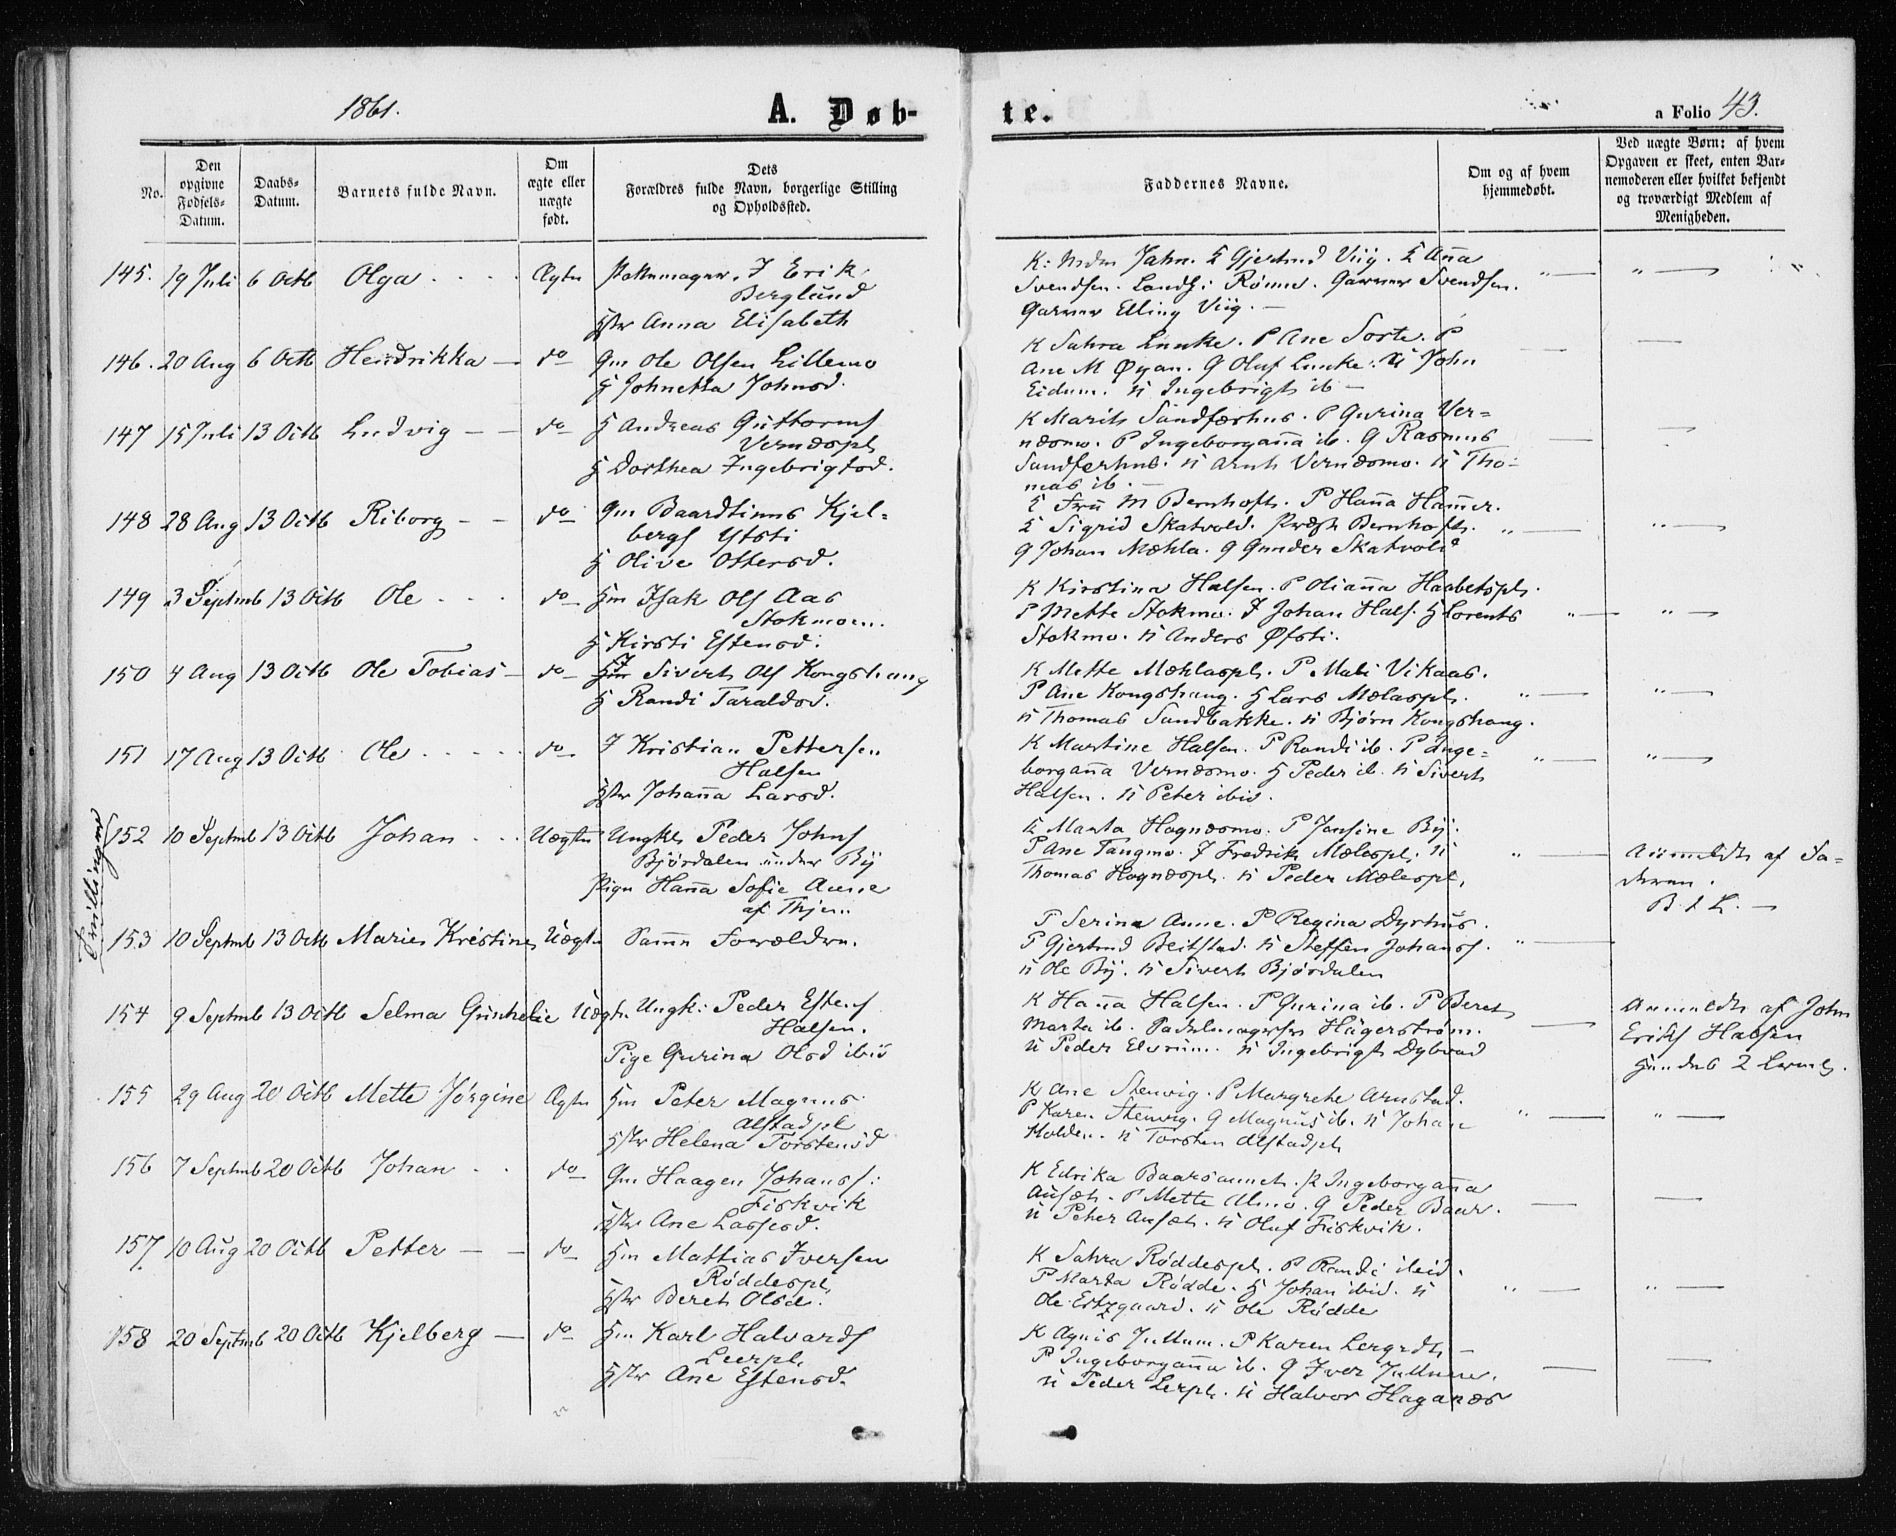 1861.
A. Døb-
te.
a Folio 43.
No.
Den opgivne Fødsels-Datum.
Daabs-Datum.
Barnets fulde Navn.
Om ægte eller uægte født.
Dets Forældres fulde Navn, borgerlige Stilling og Opholdssted.
Faddernes Navne.
Om og af hvem hjemmedøbt.
Ved uægte Børn: af hvem Opgaven er skeet, enten Barnemoderen eller hvilket bekjendt og troværdigt Medlem af Menigheden.
145. 19 Juli 6 Octb Olga Ægte Pottemager J Erik
Berglund
Hstr Anna Elisabeth
K: Jahn. Gjertrud Viig. Anna
Svendsen. Landh: Rømo. Garver Svendsen.
Garver Elling Viig.
146. 20 Aug 6 Octb Hendrikka do Gm Ole Olsen Lillemo
H Johnetta Johnsd.
K Sahra Luncke. P Ane Sorte. P
Ane M Øyan. G Oluf Luncke. U John
Eidum. U Ingebrigt ib
147 15 Juli 13 Octb Ludvig do H Andreas Guttorms
Vernæspl
H Dorthea Ingebrigtsd.
K Marit Sandferhus. P Gurina Ver=
næsmo. P Ingeborganna ib. G Rasmus
Sandferhus. U Arnt Vernæsmo. U Tho-
mas ib.
148 28 Aug 13 Octb Riborg do Gm Baardtinus Kjel=
bergs Yststi
H Olive Ottersd.
Fru M Bernhoft. P Hanna Hammer.
Sigrid Skatvold. Præst Bernhoft.
G Johan Mæhla. G Gunder Skatvold
149 3 Septmb 13 Octb Ole do Hm Isak Ols Aas
Stokmoen.
H Kirsti Estensd.
K Kirstina Halsen. P Olianna Haabetspl.
P Mette Stokmo. J Johan Hals. H Lorents
Stokmo. U Anders Øfsti.
150 4 Aug 13 Octb Ole Tobias do J Sivert Ols Kongshaug
H Randi Taraldsd.
K Mette Mæhlaspl. P Mali Vikaas.
P Ane Kongshaug. H Lars Mælaspl.
U Thomas Sandbakke. U Bjørn Kongshaug.
151 17 Aug 13 Octb Ole do J Kristian Pettersen
Halsen
Hstr Johanna Larsd.
K Martine Halsen. P Randi ib. P Inge=
borganna Vernæsmo. H Peder ib. U Sivert
Halsen. U Peter ibid.
Tvillinger
152 10 Septmb 13 Octb Johan Uægte Ungk. Peder Johns
Bjørdalen under By
Pige Hanna Sofie Aune
af Thjem
K Marta Hognæsmo. P Jonsine By.
P Ane Tangmo. J Fredrik Mælespl. U
Thomas Hognæspl. U Peder Mælespl.
Anmeldt af Fa=
deren.
153 10 Septmb 13 Octb Marie Kristine Uægte Samme Forældre.
P Serina Aune. P Regina Dyrhus.
P Gjertrud Beitstad. U Steffen Johans.
U Ole By. U Sivert Bjørdalen
154 9 Septmb 13 Octb Selma Gunhelie Uægte. Ungk: Peder Estens
Halsen.
Pige Gurina Olsd ibid
K Hanna Halsen. P Gurina ib. P Beret
Marta ib. Hägerstrøm.
U Peder Elvrum. U Ingebrigt Dybvad
Anmeldt af John
Eriks Halsen
155 29 Aug 20 Octb Mette Jørgine Ægte Hm Peter Magnus
Alstadpl
Hstr Helena Torstensd
K Ane Stenvig. P Margrete Arnstad.
P Karen Stenvig. G Magnus ib. U Johan
Holden. U Torsten Alstadpl
156 7 Septmb 20 Octb Johan do Gm Haagen Johans:
Fiskvik
Hstr Ane Lassesd.
K Edrika Baarsaunet. P Ingeborganna
Aufæt. P Mette Almo. G Peder Baar.
U Peter Aufæt. U Oluf Fiskvik.
157 10 Aug 20 Octb Petter do Hm Mattias Iversen
Røddespl
Hstr Beret Olsd.
K Sahra Røddespl. P Randi ibid.
P Marta Rødde. H Johan ibid. U
Ole Ertzgaard. U Ole Rødde
158 20 Septmb 20 Octb Kjelberg do Hm Karl Halvards
Leerpl.
Hstr Ane Estensd.
K Agnis Jullum. P Karen Lergrdt
P Ingeborganna ib. G Iver Jullum.
U Peder Lerpl. U Halvor Haganæs